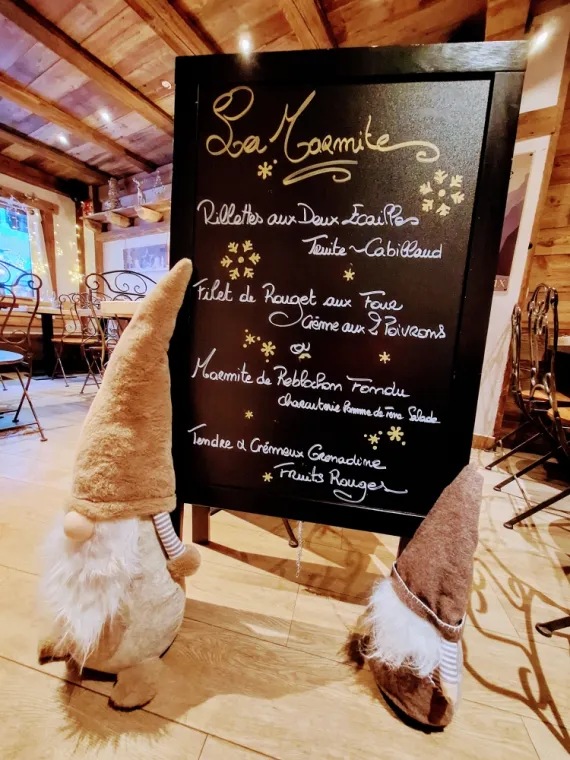 La Marmite
Rillettes aux Deux Écailles
Truite ~ Cabillaud
Filet de Rouget aux Four
Crème aux 2 Poivrons
ou
Marmite de Reblochon Fondu
Charcuterie Pomme de Terre Salade
Tendre & Crémeux Grenadine
Fruits Rouges